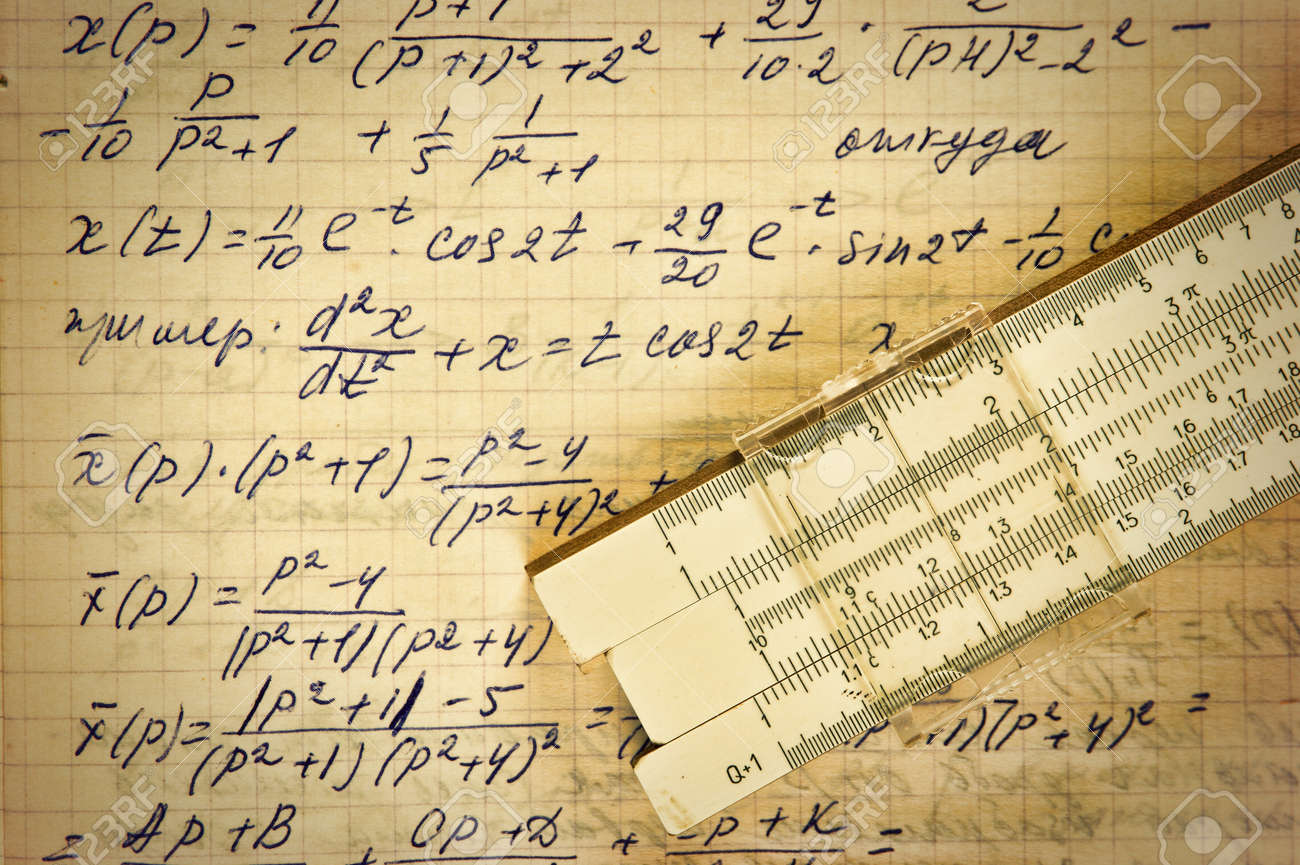 x(p) = 11/10 (p+1)/((p+1)²+2²) + 29/(10·2) · 2/((p+1)²-2² -
- 1/10 p/(p²+1) + 1/5 1/(p²+1) откуда
x(t) = 11/10 e^-t · cos2t + 29/20 e^-t · sin2t - 1/10 c
пример: d²x/dt² + x = t cos2t x
x̄(p)·(p²+1) = (p²-4)/(p²+4)² +
x̄(p) = (p²-4)/((p²+1)(p²+4)
x̄(p) = ((p²+1)-5)/((p²+1)(p²+4)²) = +1)(p²+4)² =
= Ap+B + Cp+D + -p+K =
1 2 3 4 5 6 7 8
1 2 3 π 4
1 2 3 π
10 9 8 7 6
1 1.1 c 1.2 1.3 14 15 16 1.7 1.8
1 1.1 c 1.2 1.3 1.4 1.5 1.6 1.7 1.8
Q+1 1 2
123RF